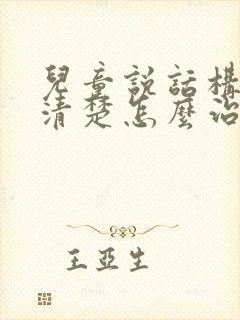 兒童説話構
清楚怎麼治
王亞生